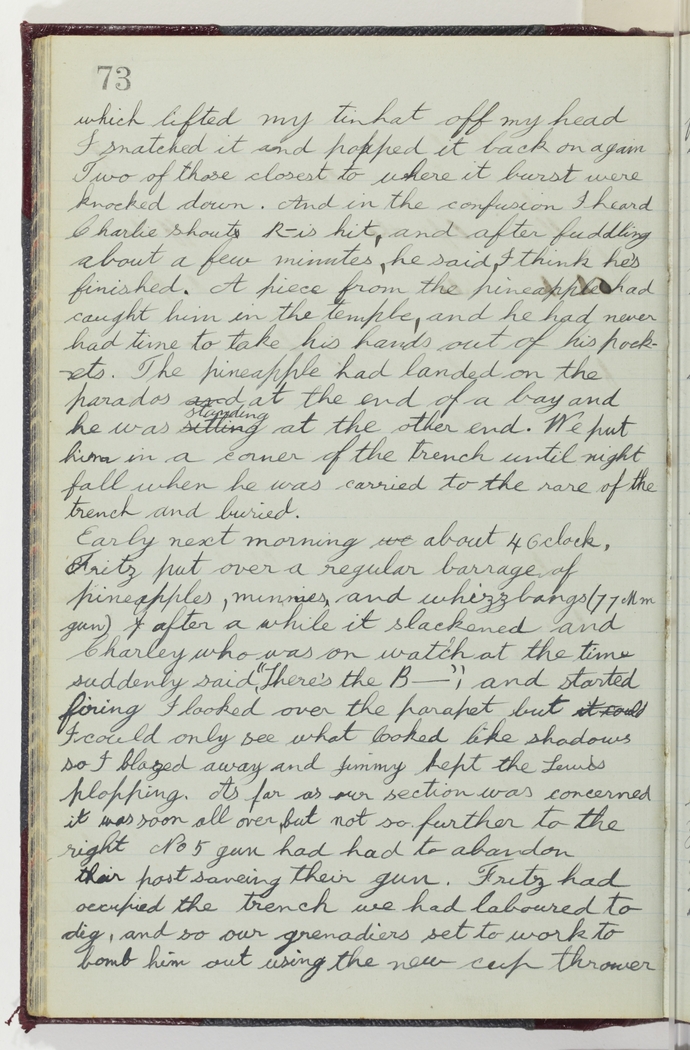 73
which lifted my tinhat off my head
I snatched it and popped it back on again
Two of those closest to where it burst were
knocked down. And in the confusion I heard
Charlie shouts R- is hit, and after fuddling
about a few minutes, he said, I think he's
finished. A piece from the pineapple had
caught him in the temple, and he had never
had time to take his hands out of his pock-
ets. The pineapple had landed on the
parados and at the end of a bay and
standing
he was sitting at the other end. We put
him in a corner of the trench until night
fall when he was carried to the rare of the
trench and buried.
Early next morning we about 4 Oclock,
Fritz put over a regular barrage of
pineapples, minnies, and whizzbangs (77 Mm
gun) & after a while it slackened and
Charley who was on watch at the time
suddenly said "There's the B—"! and started
firing I looked over the parapet but it could
I could only see what looked like shadows
so I blazed away and Jimmy kept the Lewis
plopping. As far as our section was concerned
it was soon all over, but not so further to the
right No 5 gun had had to abandon
their post saveing their gun. Fritz had
occupied the trench we had laboured to
dig, and so our grenadiers set to work to
bomb him out using the new cup thrower